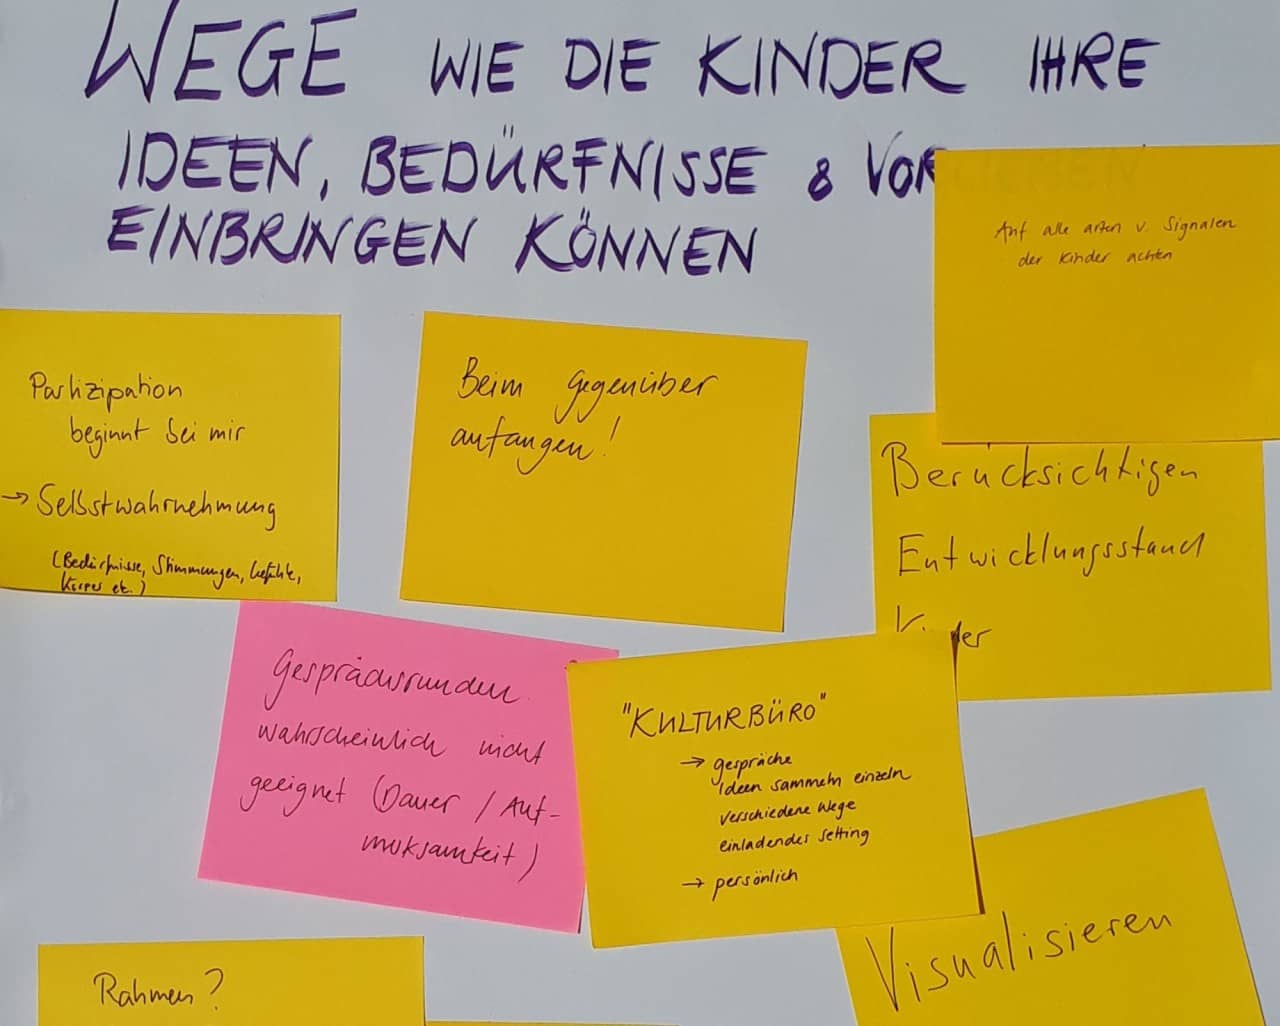 WEGE WIE DIE KINDER IHRE
IDEEN, BEDÜRFNISSE & VORLIEBEN
EINBRINGEN KÖNNEN
Auf alle arten v. Signalen
der Kinder achten
Partizipation
beginnt bei mir
→ Selbstwahrnehmung
(Bedürfnisse, Stimmungen, Gefühle,
Körper etc.)
Beim Gegenüber
anfangen!
Berücksichtigen
Entwicklungsstand
Gesprächsrunden
wahrscheinlich nicht
geeignet (Dauer / Auf-
merksamkeit)
"KULTURBÜRO"
→ gespräche
Ideen sammeln einzeln
verschiedene Wege
einladendes Setting
→ persönlich
Visualisieren
Rahmen?